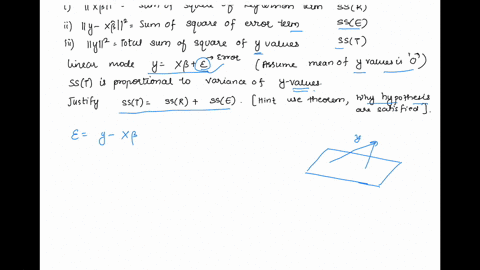 i) ||Xβ||² = Sum of square of regression term SS(R)
ii) ||y - Xβ||² = Sum of square of error term SS(E)
iii) ||y||² = Total sum of square of y values SS(T)
Linear mode y = Xβ + ε Error (Assume mean of y values is '0')
SS(T) is proportional to variance of y-values
Justify SS(T) = SS(R) + SS(E). [Hint use theorem, Why hypothesis
are satisfied].
ε = y - Xβ
y